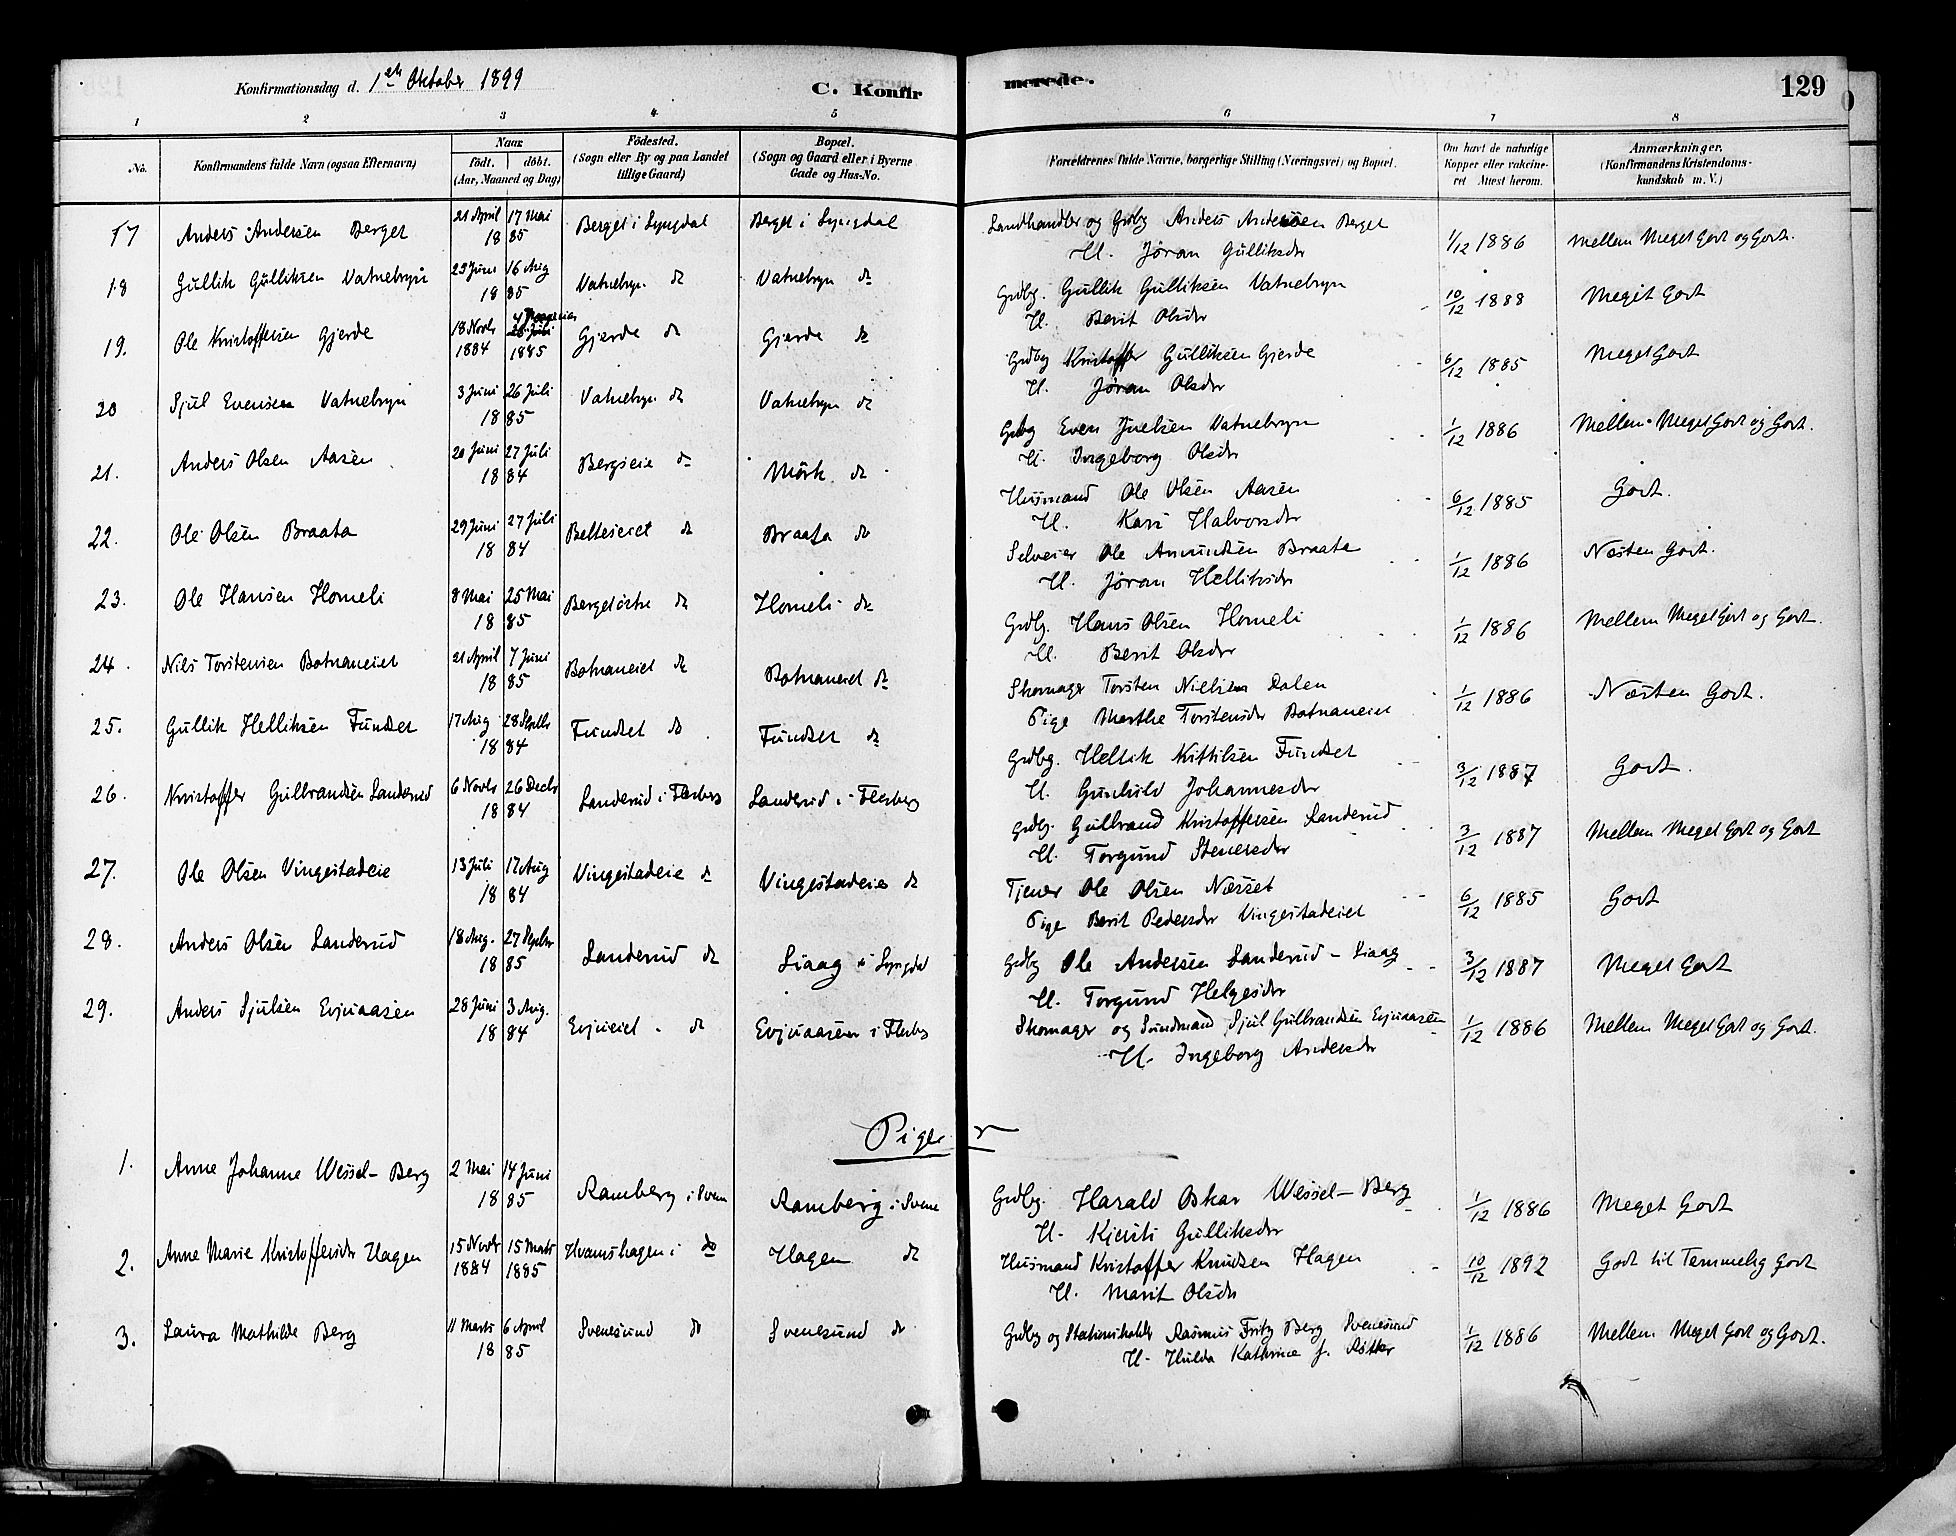 Konfirmationsdag d. 1ste Oktober 1899 C. Konfirmerede. 129
1 2 3 4 5 6 7 8
No. Konfirmandens fulde Navn (ogsaa Efternavn) Naar født. døbt. (Aar, Maaned og Dag) Fødested. (Sogn eller By og paa Landet tillige Gaard) Bopæl. (Sogn og Gaard eller i Byerne Gade og Hus-No. Forældrenes fulde Navne, borgerlige Stilling (Næringsvei) og Bopæl. Om havt de naturlige Kopper eller vakcineret Attest herom. Anmærkninger. (Konfirmandens Kristendomskundskab m. V.)
17 Anders Andersen Berget 21 April 17 Mai 1885 Berget i Lyngdal Berget i Lyngdal Landhandler og Grdbg Anders Andersen Berget 1/12 1886 Mellem Meget Godt og Godt.
H. Jøran Gulliksdr
18 Gullik Gulliksen Vatnebryn 23 Juni 16 Aug 1885 Vatnebryn do Vatnebryn do Grdbg. Gullik Gulliksen Vatnebryn 10/12 1888 Meget Godt
H. Berit Olsdr
19. Ole Kristoffersen Gjerde 18 Novbr 1884 1885 Gjerde do Gjerde do Grdbg Kristoffer Gulliksen Gjerde 6/12 1885 Meget Godt
H. Jøran Olsdr
20 Sjul Evensen Vatnebryn 3 Juni 26 Juli 1885 Vatnebryn do Vatnebryn do Grdbg Even Juelsen Vatnebryn 1/12 1886 Mellem Meget Godt og Godt.
H. Ingeborg Olsdr
21. Anders Olsen Aasen 20 Juni 27 Juli 1884 Bergseie do Mörk do Husmand Ole Olsen Aasen 6/12 1885 Godt.
H. Kari Halvorsdr
22. Ole Olsen Braata 29 Juni 27 Juli 1884 Belteseiet do Braata do Selveier Ole Amundsen Braata 1/12 1886 Næsten Godt.
H. Jøran Helliksdr
23. Ole Hansen Homeli 8 Mai 25 Mai 1885 Bergetöstre do Homeli do Grdbg. Hans Olsen Homeli 1/12 1886 Mellem Meget Godt og Godt.
H. Berit Olsdr
24. Nils Torstensen Botnaneiet 21 April 7 Juni 1885 Botnaneiet do Botnaneiet do Skomager Torsten Nielsen Dalen 1/12 1886 Næsten Godt.
Pige Marthe Torstensdr Botnaneiet
25. Gullik Helliksen Fundset 17 Aug 28 Septbr 1884 Fundset do Fundset do Grdbg. Hellik Kittilsen Fundset 3/12 1887 Godt.
H. Gunhild Johannesdr
26. Kristoffer Gulbrandsen Landerud 6 Novbr 26 Decbr 1884 Landerud i Flesberg Landerud i Flesberg Grdbg. Gulbrand Kristoffersen Landerud 3/12 1887 Mellem Meget Godt og Godt
H. Torgund Stenersdr
27. Ole Olsen Vingestadeie 13 Juli 17 Aug 1884 Vingestadeie do Vingestadeie do Tjener Ole Olsen Næsset 6/12 1885 Godt
Pige Berit Pedersdr Vingestadeiet
28. Anders Olsen Landerud 18 Aug. 27 Septbr 1885 Landerud do Liaag i Lyngdal Grdbg Ole Andersen Landerud - Liaag 3/12 1887 Meget Godt
H. Torgund Helgesdr
29. Anders Sjulsen Evjuaasen 28 Juni 3 Aug. 1884 Evjueiet do Evjuaasen i Flesberg Skomager og Sundmand Sjul Gulbrandsen Evjuaasen 1/12 1886 Mellem Meget Godt og Godt.
H. Ingeborg Andersdr
Piger
1. Anne Johanne Wessel-Berg 2 Mai 14 Juni 1885 Ramberg i Svene Ramberg i Svene Grdbg. Harald Oskar Wessel-Berg 1/12 1886 Meget Godt
H. Kjersti Gulliksdr
2. Anne Marie Kristoffersdr Hagen 15 Novbr 1884 15 Marts 1885 Hvamshagen i do Hagen do Husmand Kristoffer Knudsen Hagen 10/12 1892 Godt til Temmelig Godt
H. Marit Olsdr
3. Laura Mathilde Berg 11 Marts 6 April 1885 Svenesund do Svenesund do Grdbg og Stationsholder Rasmus Fritz Berg Svenesund 1/12 1886 Mellem Meget Godt og Godt.
H. Hulda Kathrine f.